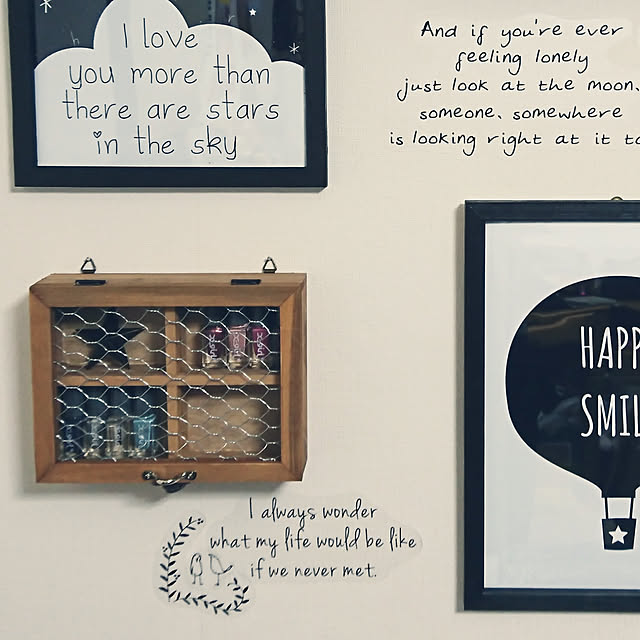 I love
you more than
there are stars
in the sky
And if you're ever
feeling lonely
just look at the moon.
someone, somewhere
is looking right at it
I always wonder
what my life would be like
if we never met.